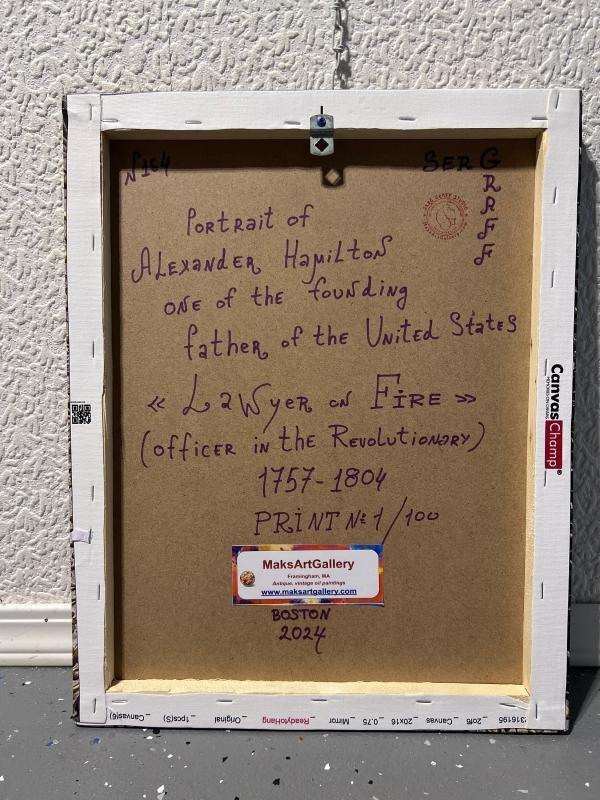 №164
SER GRAFF
Portrait of
Alexander Hamilton
one of the founding
father of the United States
« Lawyer on Fire »
(officer in the Revolutionary)
1757-1804
PRINT №1/100
MaksArtGallery
Framingham, MA
Antique, vintage oil paintings
www.maksartgallery.com
BOSTON
2024
CanvasChamp®
316195 _ 2of6 _ Canvas _ 20x16 _ 0.75 _ Mirror _ ReadytoHang _ Original _ 1pcs(S) _ Canvas(6)